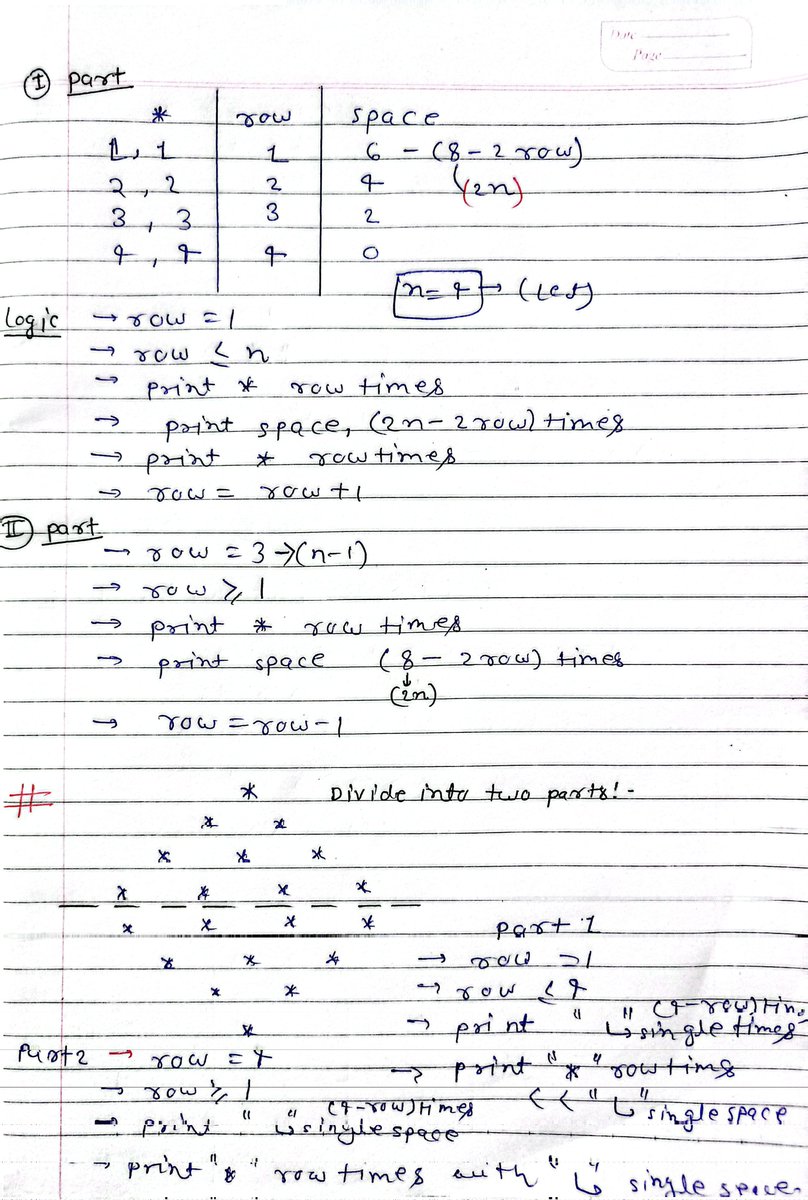 Date
Page
I part
* row space
1, 1 1 6 - (8 - 2 row)
2, 2 2 4 (2n)
3, 3 3 2
4, 4 4 0
n = 4 → (Let)
Logic → row = 1
→ row ≤ n
→ print * row times
→ print space, (2n - 2 row) times
→ print * row times
→ row = row + 1
II part
→ row = 3 → (n-1)
→ row ≥ 1
→ print * row times
→ print space (8 - 2 row) times
(2n)
→ row = row - 1
# * Divide into two parts:-
* *
* * *
* * * *
* * * *
part 1
* * * → row = 1
* * → row ≤ 4
(4-row) tim.
* → print " " single times
Part 2 → row = 4
→ print "*" row times
→ row ≥ 1
<< " " single space
(4-row) times
→ print " " single space
→ print "*" row times with " " single space.